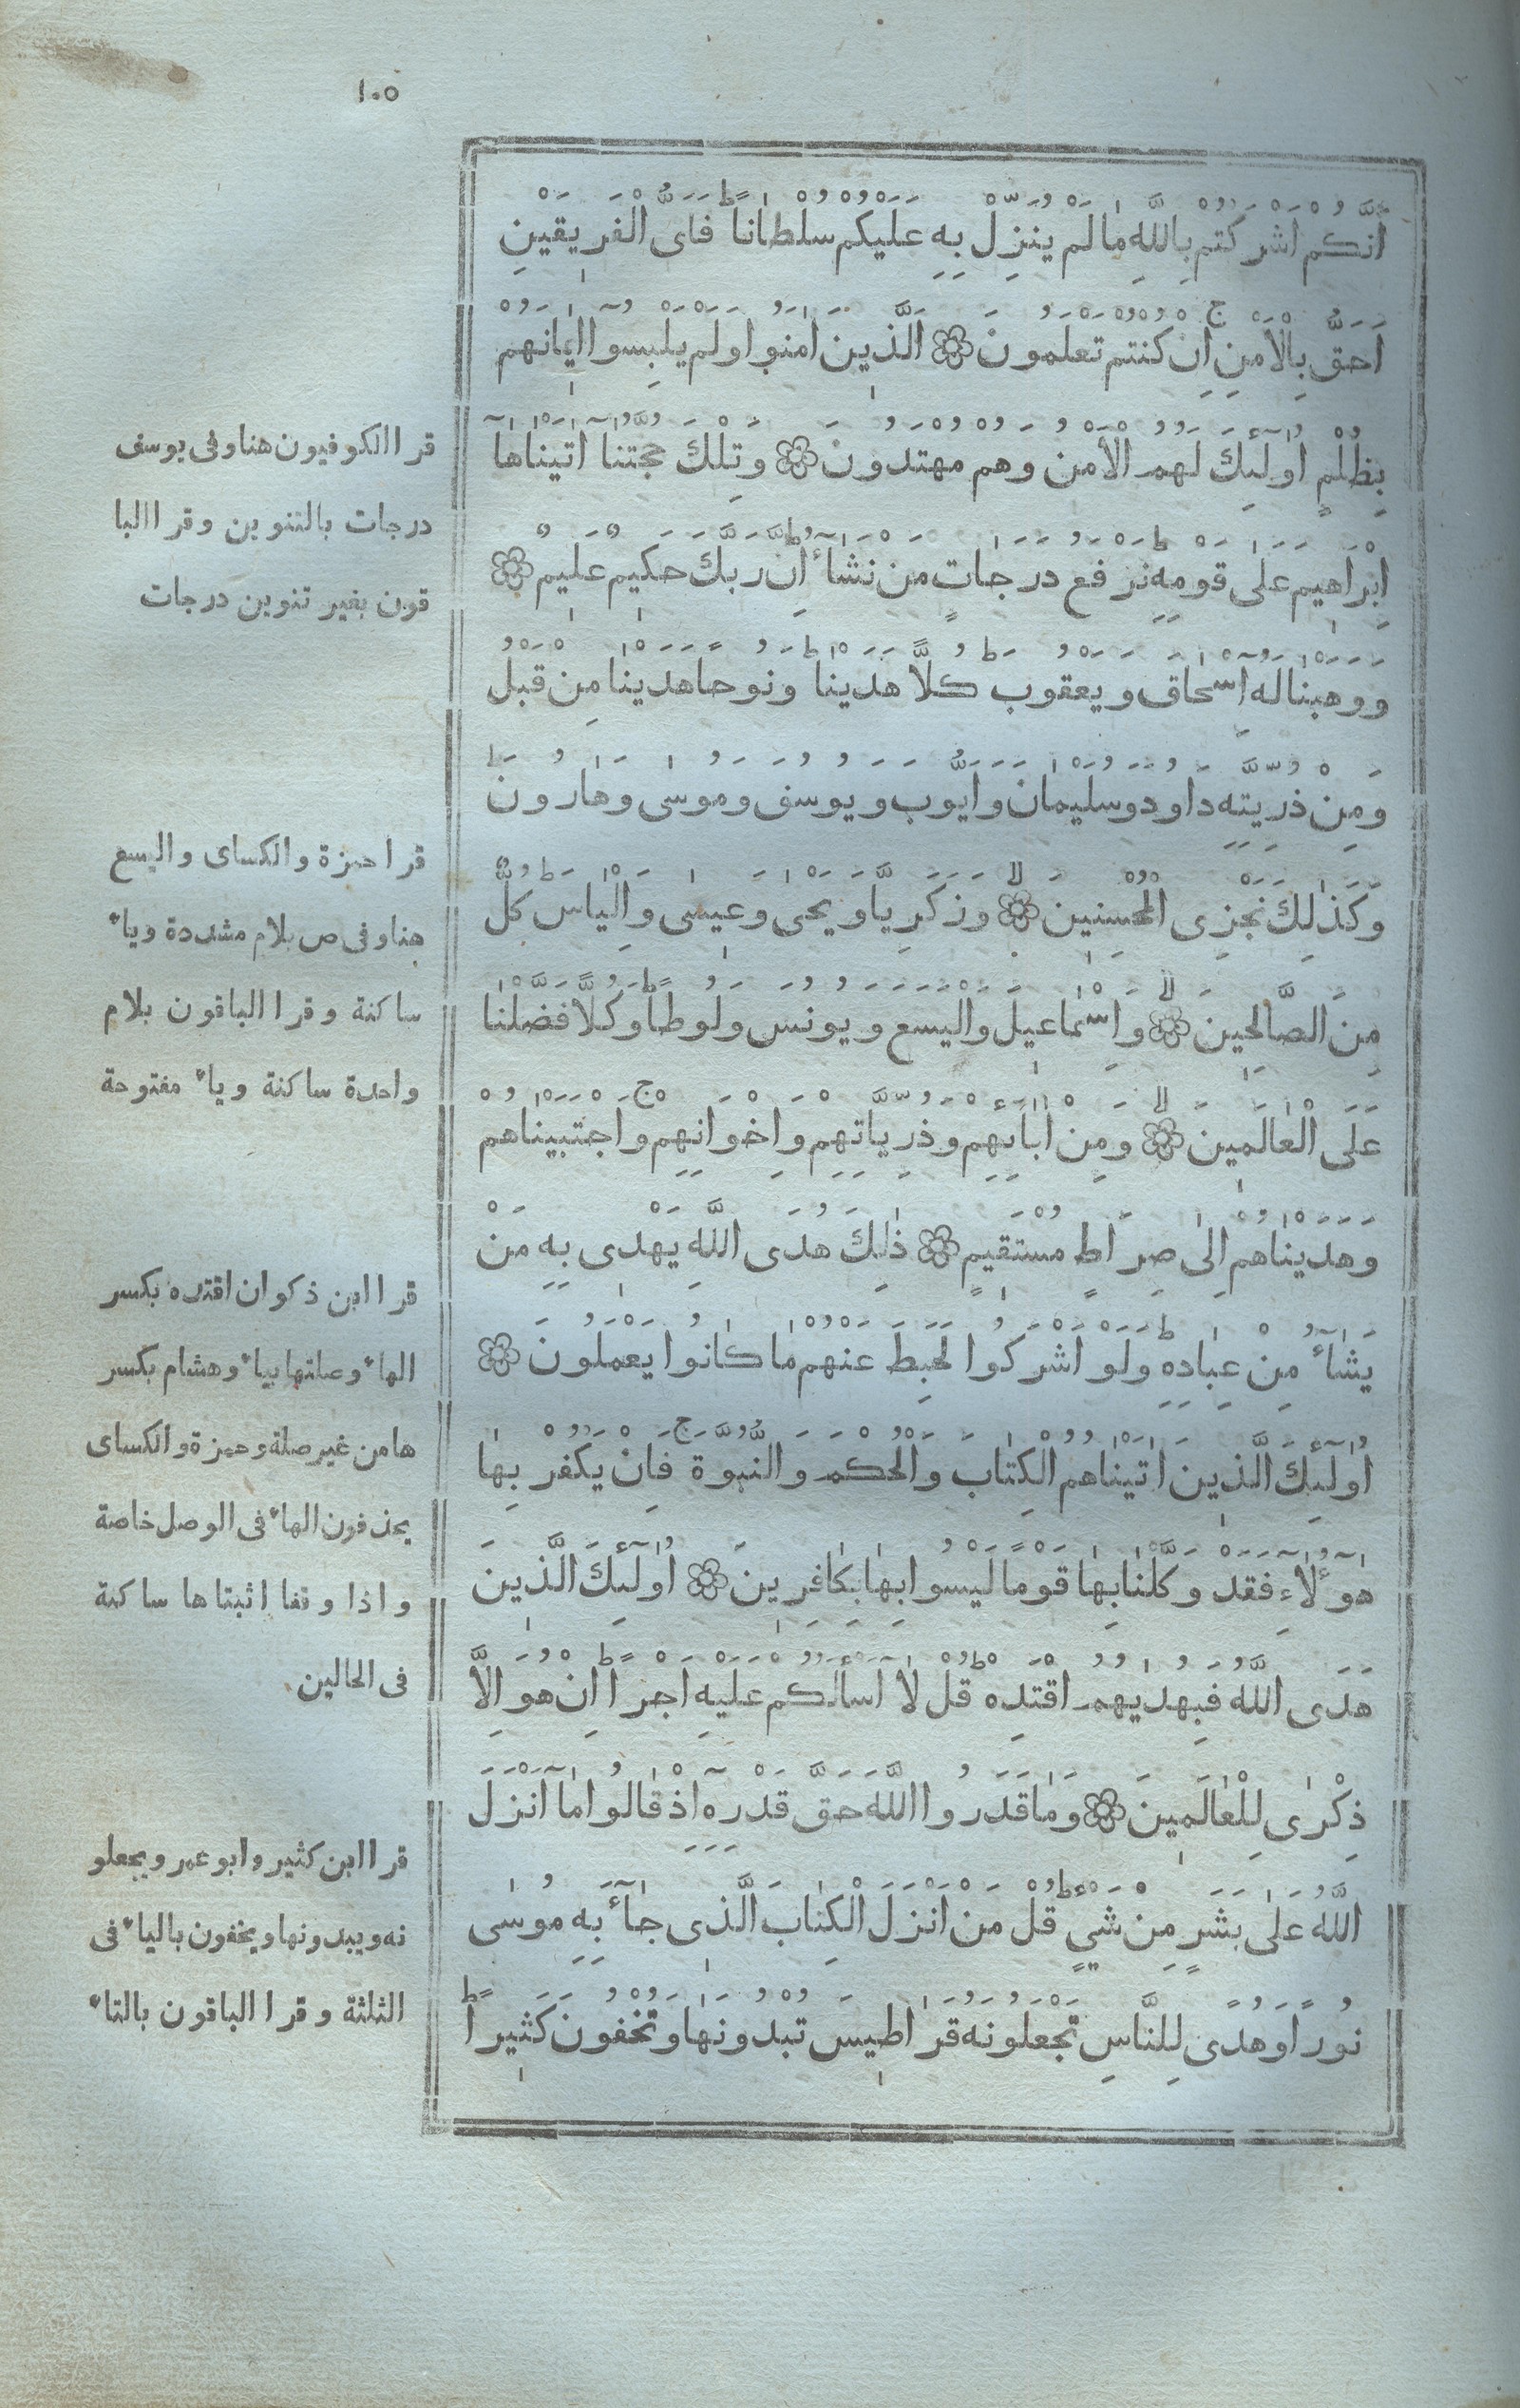 ١٠٥
اَنَّكُمْ اَشْرَكْتُمْ بِاللَّهِ مَا لَمْ يُنَزِّلْ بِهِ عَلَيْكُمْ سُلْطَانًا ط فَاَىُّ الْفَرِيقَيْنِ
اَحَقُّ بِالْاَمْنِ ج اِنْ كُنْتُمْ تَعْلَمُونَ ۞ اَلَّذِينَ اٰمَنُوا وَلَمْ يَلْبِسُوٓا اِيمَانَهُمْ
بِظُلْمٍ اُولٰٓئِكَ لَهُمُ الْاَمْنُ وَهُمْ مُهْتَدُونَ ۞ وَتِلْكَ حُجَّتُنَآ اٰتَيْنَاهَآ
اِبْرَاهِيمَ عَلٰى قَوْمِهِ ط نَرْفَعُ دَرَجَاتٍ مَنْ نَشَآءُ ط اِنَّ رَبَّكَ حَكِيمٌ عَلِيمٌ ۞
وَوَهَبْنَا لَهُٓ اِسْحَاقَ وَيَعْقُوبَ ط كُلًّا هَدَيْنَا ط وَنُوحًا هَدَيْنَا مِنْ قَبْلُ
وَمِنْ ذُرِّيَّتِهِ دَاوُدَ وَسُلَيْمَانَ وَاَيُّوبَ وَيُوسُفَ وَمُوسٰى وَهَارُونَ ط
وَكَذٰلِكَ نَجْزِى الْمُحْسِنِينَ ۞ لا وَزَكَرِيَّا وَيَحْيٰى وَعِيسٰى وَاِلْيَاسَ ط كُلٌّ
مِنَ الصَّالِحِينَ ۞ لا وَاِسْمَاعِيلَ وَالْيَسَعَ وَيُونُسَ وَلُوطًا ط وَكُلًّا فَضَّلْنَا
عَلَى الْعَالَمِينَ ۞ لا وَمِنْ اٰبَآئِهِمْ وَذُرِّيَّاتِهِمْ وَاِخْوَانِهِمْ ج وَاجْتَبَيْنَاهُمْ
وَهَدَيْنَاهُمْ اِلٰى صِرَاطٍ مُسْتَقِيمٍ ۞ ذٰلِكَ هُدَى اللَّهِ يَهْدِى بِهِ مَنْ
يَشَآءُ مِنْ عِبَادِهِ ط وَلَوْ اَشْرَكُوا لَحَبِطَ عَنْهُمْ مَا كَانُوا يَعْمَلُونَ ۞
اُولٰٓئِكَ الَّذِينَ اٰتَيْنَاهُمُ الْكِتَابَ وَالْحُكْمَ وَالنُّبُوَّةَ ج فَاِنْ يَكْفُرْ بِهَا
هٰٓؤُلَآءِ فَقَدْ وَكَّلْنَا بِهَا قَوْمًا لَيْسُوا بِهَا بِكَافِرِينَ ۞ اُولٰٓئِكَ الَّذِينَ
هَدَى اللَّهُ فَبِهُدٰيهُمُ اقْتَدِهْ ط قُلْ لَآ اَسْاَلُكُمْ عَلَيْهِ اَجْرًا ط اِنْ هُوَ اِلَّا
ذِكْرٰى لِلْعَالَمِينَ ۞ وَمَا قَدَرُوا اللَّهَ حَقَّ قَدْرِهِٓ اِذْ قَالُوا مَآ اَنْزَلَ
اللَّهُ عَلٰى بَشَرٍ مِنْ شَيْءٍ ط قُلْ مَنْ اَنْزَلَ الْكِتَابَ الَّذِى جَآءَ بِهِ مُوسٰى
نُورًا وَهُدًى لِلنَّاسِ تَجْعَلُونَهُ قَرَاطِيسَ تُبْدُونَهَا وَتُخْفُونَ كَثِيرًا ط
قرا الكوفيون هنا وفى يوسف
درجات بالتنوين وقرا البا
قون بغير تنوين درجات
قرا حمزة والكساى واليسع
هنا وفى ص بلام مشددة وياء
ساكنة وقرا الباقون بلام
واحدة ساكنة وياء مفتوحة
قرا ابن ذكوان اقتده بكسر
الهاء وصلتها بياء وهشام بكسر
ها من غير صلة وحمزة والكساى
يحذفون الهاء فى الوصل خاصة
واذا وقفا اثبتاها ساكنة
فى الحالين
قرا ابن كثير وابو عمر ويجعلو
نه ويبدونها ويخفون بالياء فى
الثلثة وقرا الباقون بالتاء